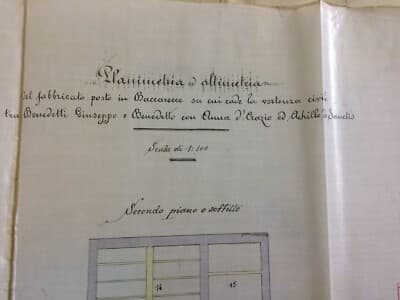 Planimetria e altimetria
del fabbricato posto in Baccaresco su cui cade la vertenza civile
tra Benedetti Giuseppe e Benedetto con Anna d'Orazio ed Achille de Sanctis
Scala di 1:100
Secondo piano e soffitte
14
15